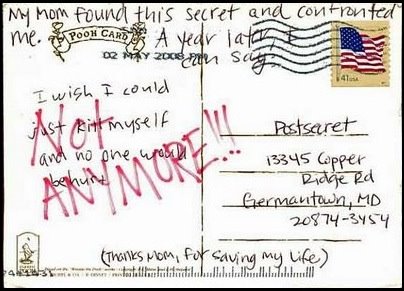 My Mom found this secret and confronted
me.
POOH CARD
A year later, I
can say:
02 MAY 2008 PM
41 USA
I wish I could
just kill myself
and no one would
be hurt.
NOT
ANYMORE!!!
Postsecret
13345 Copper
Ridge Rd
Germantown, MD
20874-3454
(Thanks Mom, for saving my life)